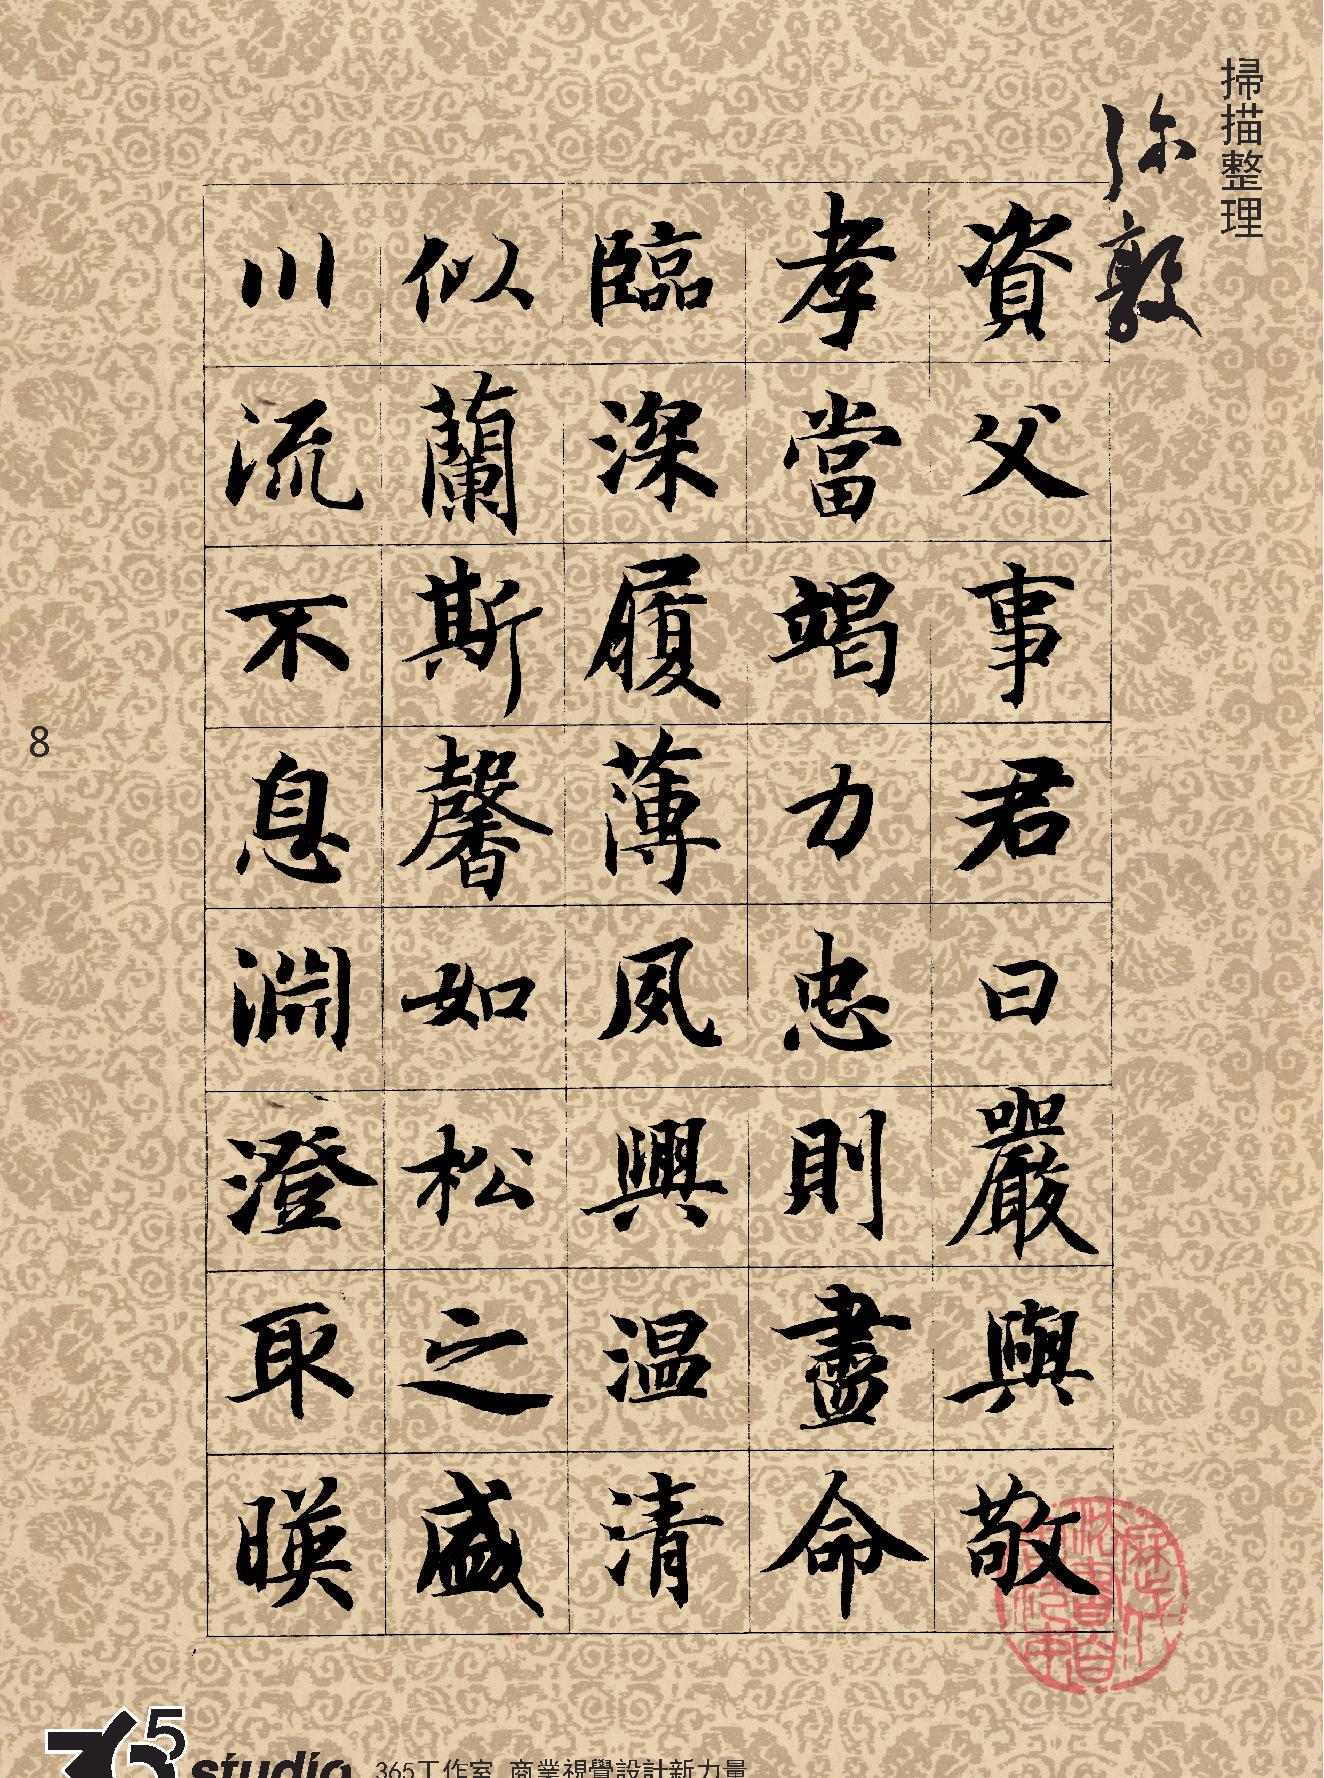 掃描整理
弥敦
資父事君曰嚴與敬
孝當竭力忠則盡命
臨深履薄夙興温清
似蘭斯馨如松之盛
川流不息淵澄取暎
8
365 studio
365工作室 商業視覺設計新力量